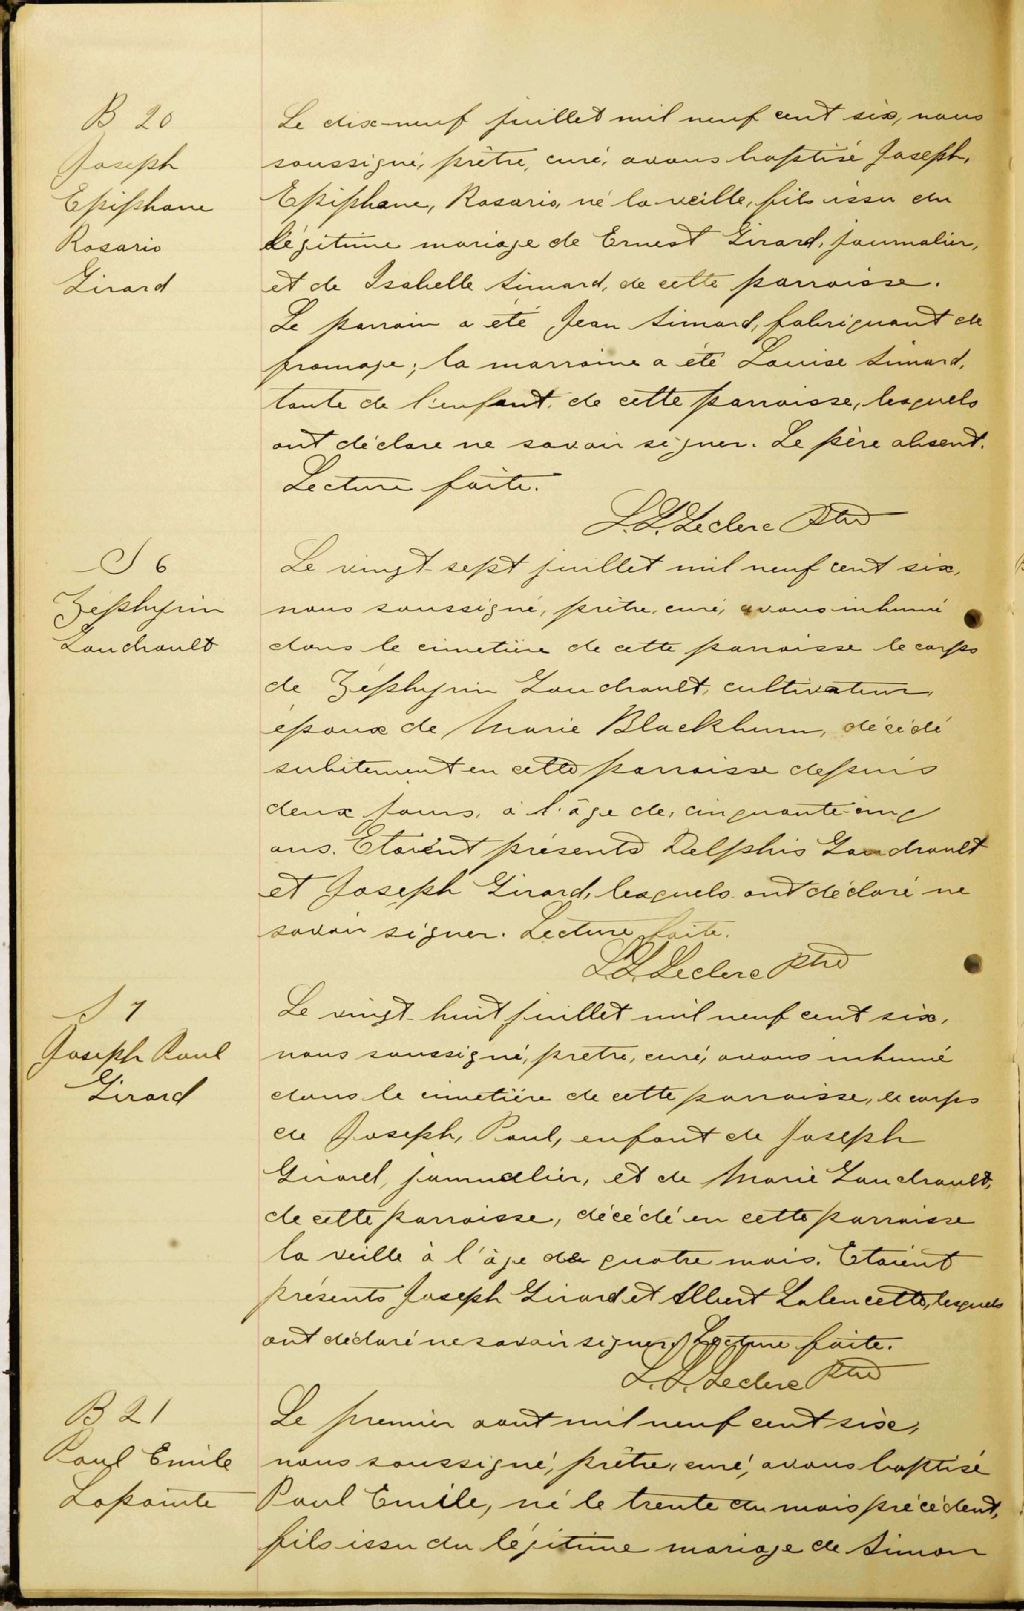 B 20
Joseph
Epiphane
Rosario
Girard
Le dix-neuf juillet mil neuf cent six, nous
soussigné, prêtre, curé, avons baptisé Joseph,
Epiphane, Rosario, né la veille, fils issu du
légitime mariage de Ernest Girard, journalier,
et de Isabelle Simard, de cette parroisse.
Le parrain a été Jean Simard, fabriquant de
fromage; la marraine a été Louise Simard,
tante de l'enfant, de cette parroisse, lesquels
ont déclaré ne savoir signer. Le père absent.
Lecture faite.
Leclerc Ptre
S 6
Zéphyrin
Gaudrault
Le vingt-sept juillet mil neuf cent six,
nous soussigné, prêtre, curé, avons inhumé
dans le cimetière de cette parroisse le corps
de Zéphyrin Gaudrault, cultivateur,
époux de Marie Blackburn, décédé
subitement en cette parroisse depuis
deux jours, à l'âge de, cinquante-cinq
ans. Etaient présents Delphis Gaudrault
et Joseph Girard, lesquels ont déclaré ne
savoir signer. Lecture faite.
Leclerc Ptre
S 7
Joseph Paul
Girard
Le vingt-huit juillet mil neuf cent six,
nous soussigné, prêtre, curé, avons inhumé
dans le cimetière de cette parroisse, le corps
de Joseph, Paul, enfant de Joseph
Girard, journalier, et de Marie Gaudrault,
de cette parroisse, décédé en cette parroisse
la veille à l'âge de quatre mois. Etaient
présents Joseph Girard et Albert Lalencette, lesquels
ont déclaré ne savoir signer. Lecture faite.
Leclerc Ptre
B 21
Paul Emile
Lapointe
Le premier août mil neuf cent six,
nous soussigné, prêtre, curé, avons baptisé
Paul Emile, né le trente du mois précédent,
fils issu du légitime mariage de Simon